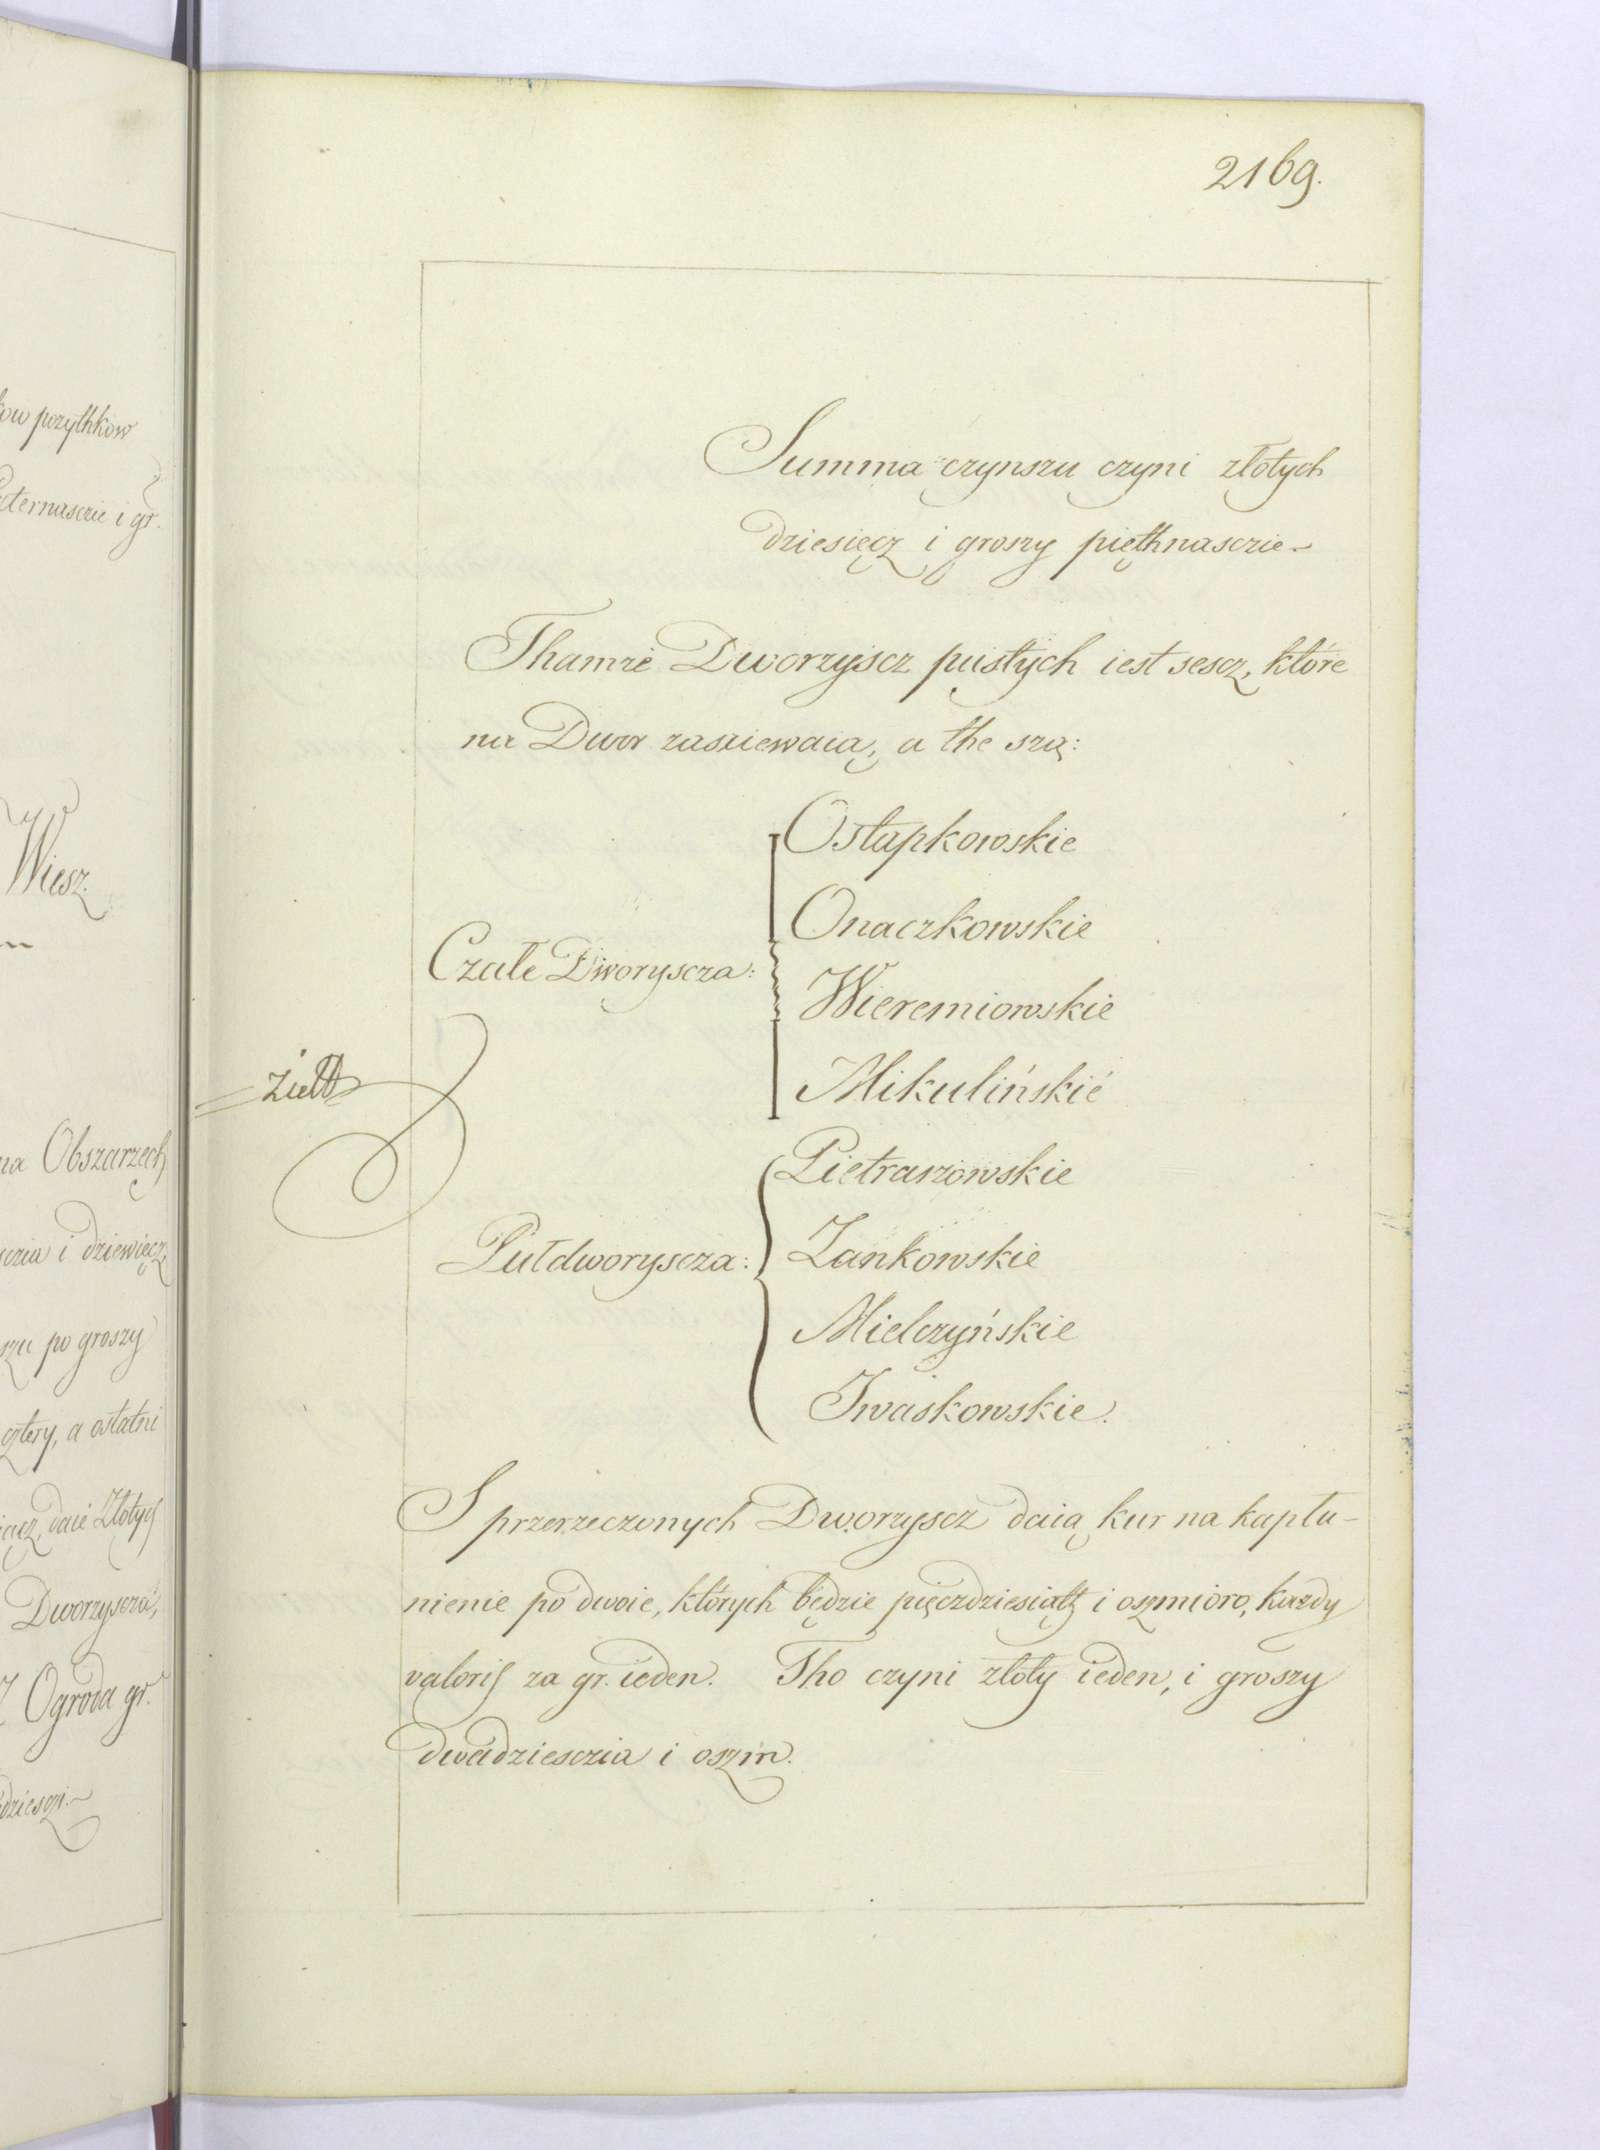 ow pozythkow
cternasczie i gr.
Wiesz.
na Obszarzech
sczia i dziewięcz,
szu po groszy
cztery, a ostatni
iącz, daie Złotych
Dworzyscza,
Z Ogroda gr.
dziesczi.
2169.
Summa czynszu czyni złotych
dziesięcz i groszy pięthnasczie
Thamże Dworzyscz pustych iest sescz, które
na Dwor zasiewaią, a the szą:
Czałe Dworyscza:
Ostapkowskie
Onaczkowskie
Wieremiowskie
Mikulińskie
Pułdworyscza:
Pietraszowskie
Zankowskie
Mielczyńskie
Iwaskowskie.
S przerzeczonych Dworzyscz daią kur na kapłu-
nienie po dwoie, których będzie pięczdziesiąth i oszmioro, każdy
valoris za gr. ieden. Tho czyni złoty ieden, i groszy
dwadziesczia i oszm.